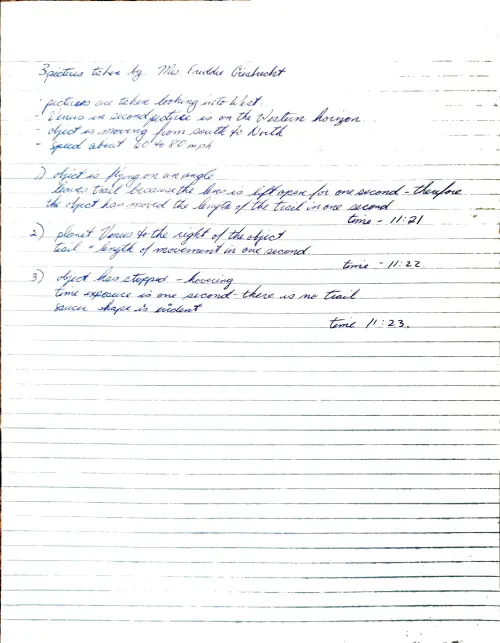 3 pictures taken by Mrs. Freddie Giesbrecht
- pictures are taken looking into West.
- Venus in second picture is on the Western horizon
- object is moving from south to North
- Speed about 60 to 80 mph
1) object is flying on an angle
leaves trail because the lens is left open for one second - therefore
the object has moved the length of the trail in one second
time - 11:21
2) planet Venus to the right of the object
trail = length of movement in one second
time - 11:22.
3) object has stopped - hovering
time exposure is one second - there is no trail
saucer shape is evident
time 11:23.